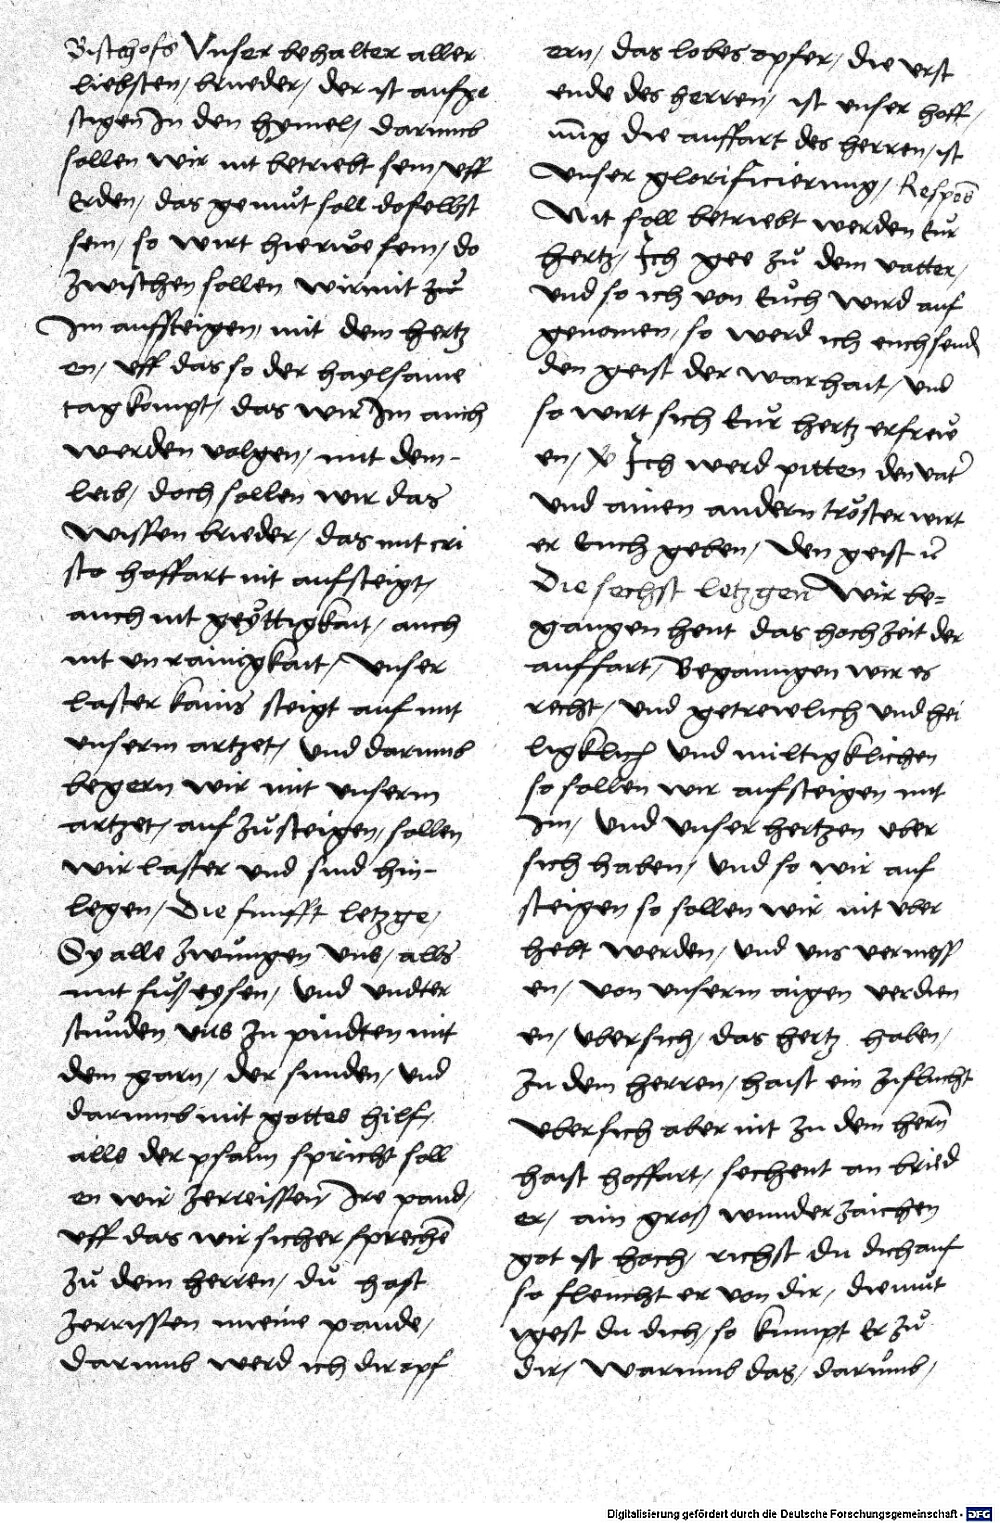 Bischofs Vnser behalter aller
liebsten / brueder / der ist aufge
stigen In den hymel / darumb
sollen wir nit betriebt sein / vff
Erden / das gemůt soll doselbst
sein / so wirt hie rwe sein / do
Zwischen sollen wir mit zů
Im auffsteigen / mit dem hertz
en / vff das so der haylsame
tag kompt / das wir Im auch
werden volgen / mit dem-
leib / doch sollen wir das
wissen brieder / das mit cri
sto hoffart nit aufsteigt /
auch nit geyttigkait / auch
nit vn rainigkait / Vnser
laster kains steigt auf mit
vnserm artzet / Vnd darumb
begern wir mit vnserm
artzet / auf Zů steigen / sollen
wir laster vnd sind hin-
legen / Die funfft letzge /
Sy alle Zwůngen vns / alls
mit fůß eysen / Vnd vndter
stůnden vns Zu pindten mit
dem garn / der sunden / Vnd
darumb mit gottes hilf /
alls der psalm spricht soll
en wir Zerreissen Ire pand /
vff das wir sicher sprechē
Zů dem herren / dů hast
Zerrissen meine pande /
darumb werd ich dir opf
ern / das lobes opfer / die vrst
ende des herren / ist vnser hoff
nūng die auffart des herren / ist
Vnser glorificierung / Respōs
Nit soll betriebt werden Eůr
hertz / Ich gee zů dem vatter /
vnd so ich von Eůch wird auf
genomen / so werd ich euch send
den geist der warhait / vnd
so wirt sich Eůr hertz erfrew
en / V Ich werd pitten den vat
vnd ainen andern tröster wirt
er Euch geben / den geist
Die sechst letzgen Wir be=
gangen heut das hochzeit der
auffart / Beganngen wir es
recht / vnd getrewlich vnd hei
ligklich Vnd miltigklichen
so sollen wir aufsteigen mit
Im / Vnd vnser hertzen vber
sich haben / Vnd so wir auf
steigen so sollen wir nit vber
hebt werden / Vnd vns vermess
en / von vnserm aigen verdien
en / vbersich / das hertz haben /
Zu dem herren / haist ein Zuflucht
vbersich aber nit Zu dem hern
haist hoffart / sechent an bried
er / ain groß wunder Zaichen
got ist hoch / richst du dich auf
so fleucht er von dir / diemůt
igest du dich / so kumpt Er Zů
dir / Warumb das / darumb /
Digitalisierung gefördert durch die Deutsche Forschungsgemeinschaft - DFG